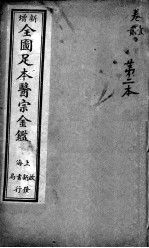 新增
全國足本醫宗金鑑
上海
啟新書局發行
卷貳
第二本